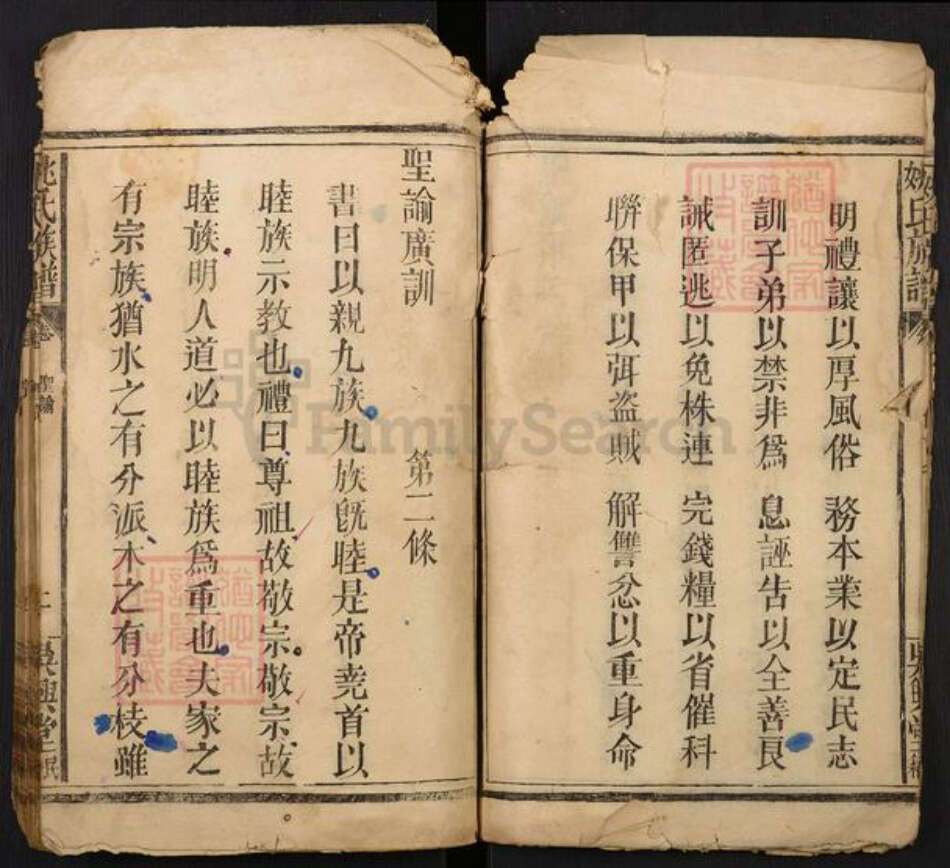 姚氏族譜
明禮讓以厚風俗　務本業以定民志
訓子弟以禁非爲　息誣告以全善良
誡匿逃以免株連　完錢糧以省催科
聨保甲以弭盗賊　解讐忿以重身命
聖諭廣訓
第二條
書曰以親九族九族既睦是帝堯首以
睦族示教也禮曰尊祖故敬宗敬宗故
睦族明人道必以睦族爲重也夫家之
有宗族猶水之有分派木之有分枝雖
姚氏族譜
聖諭
二
吳興堂
FamilySearch